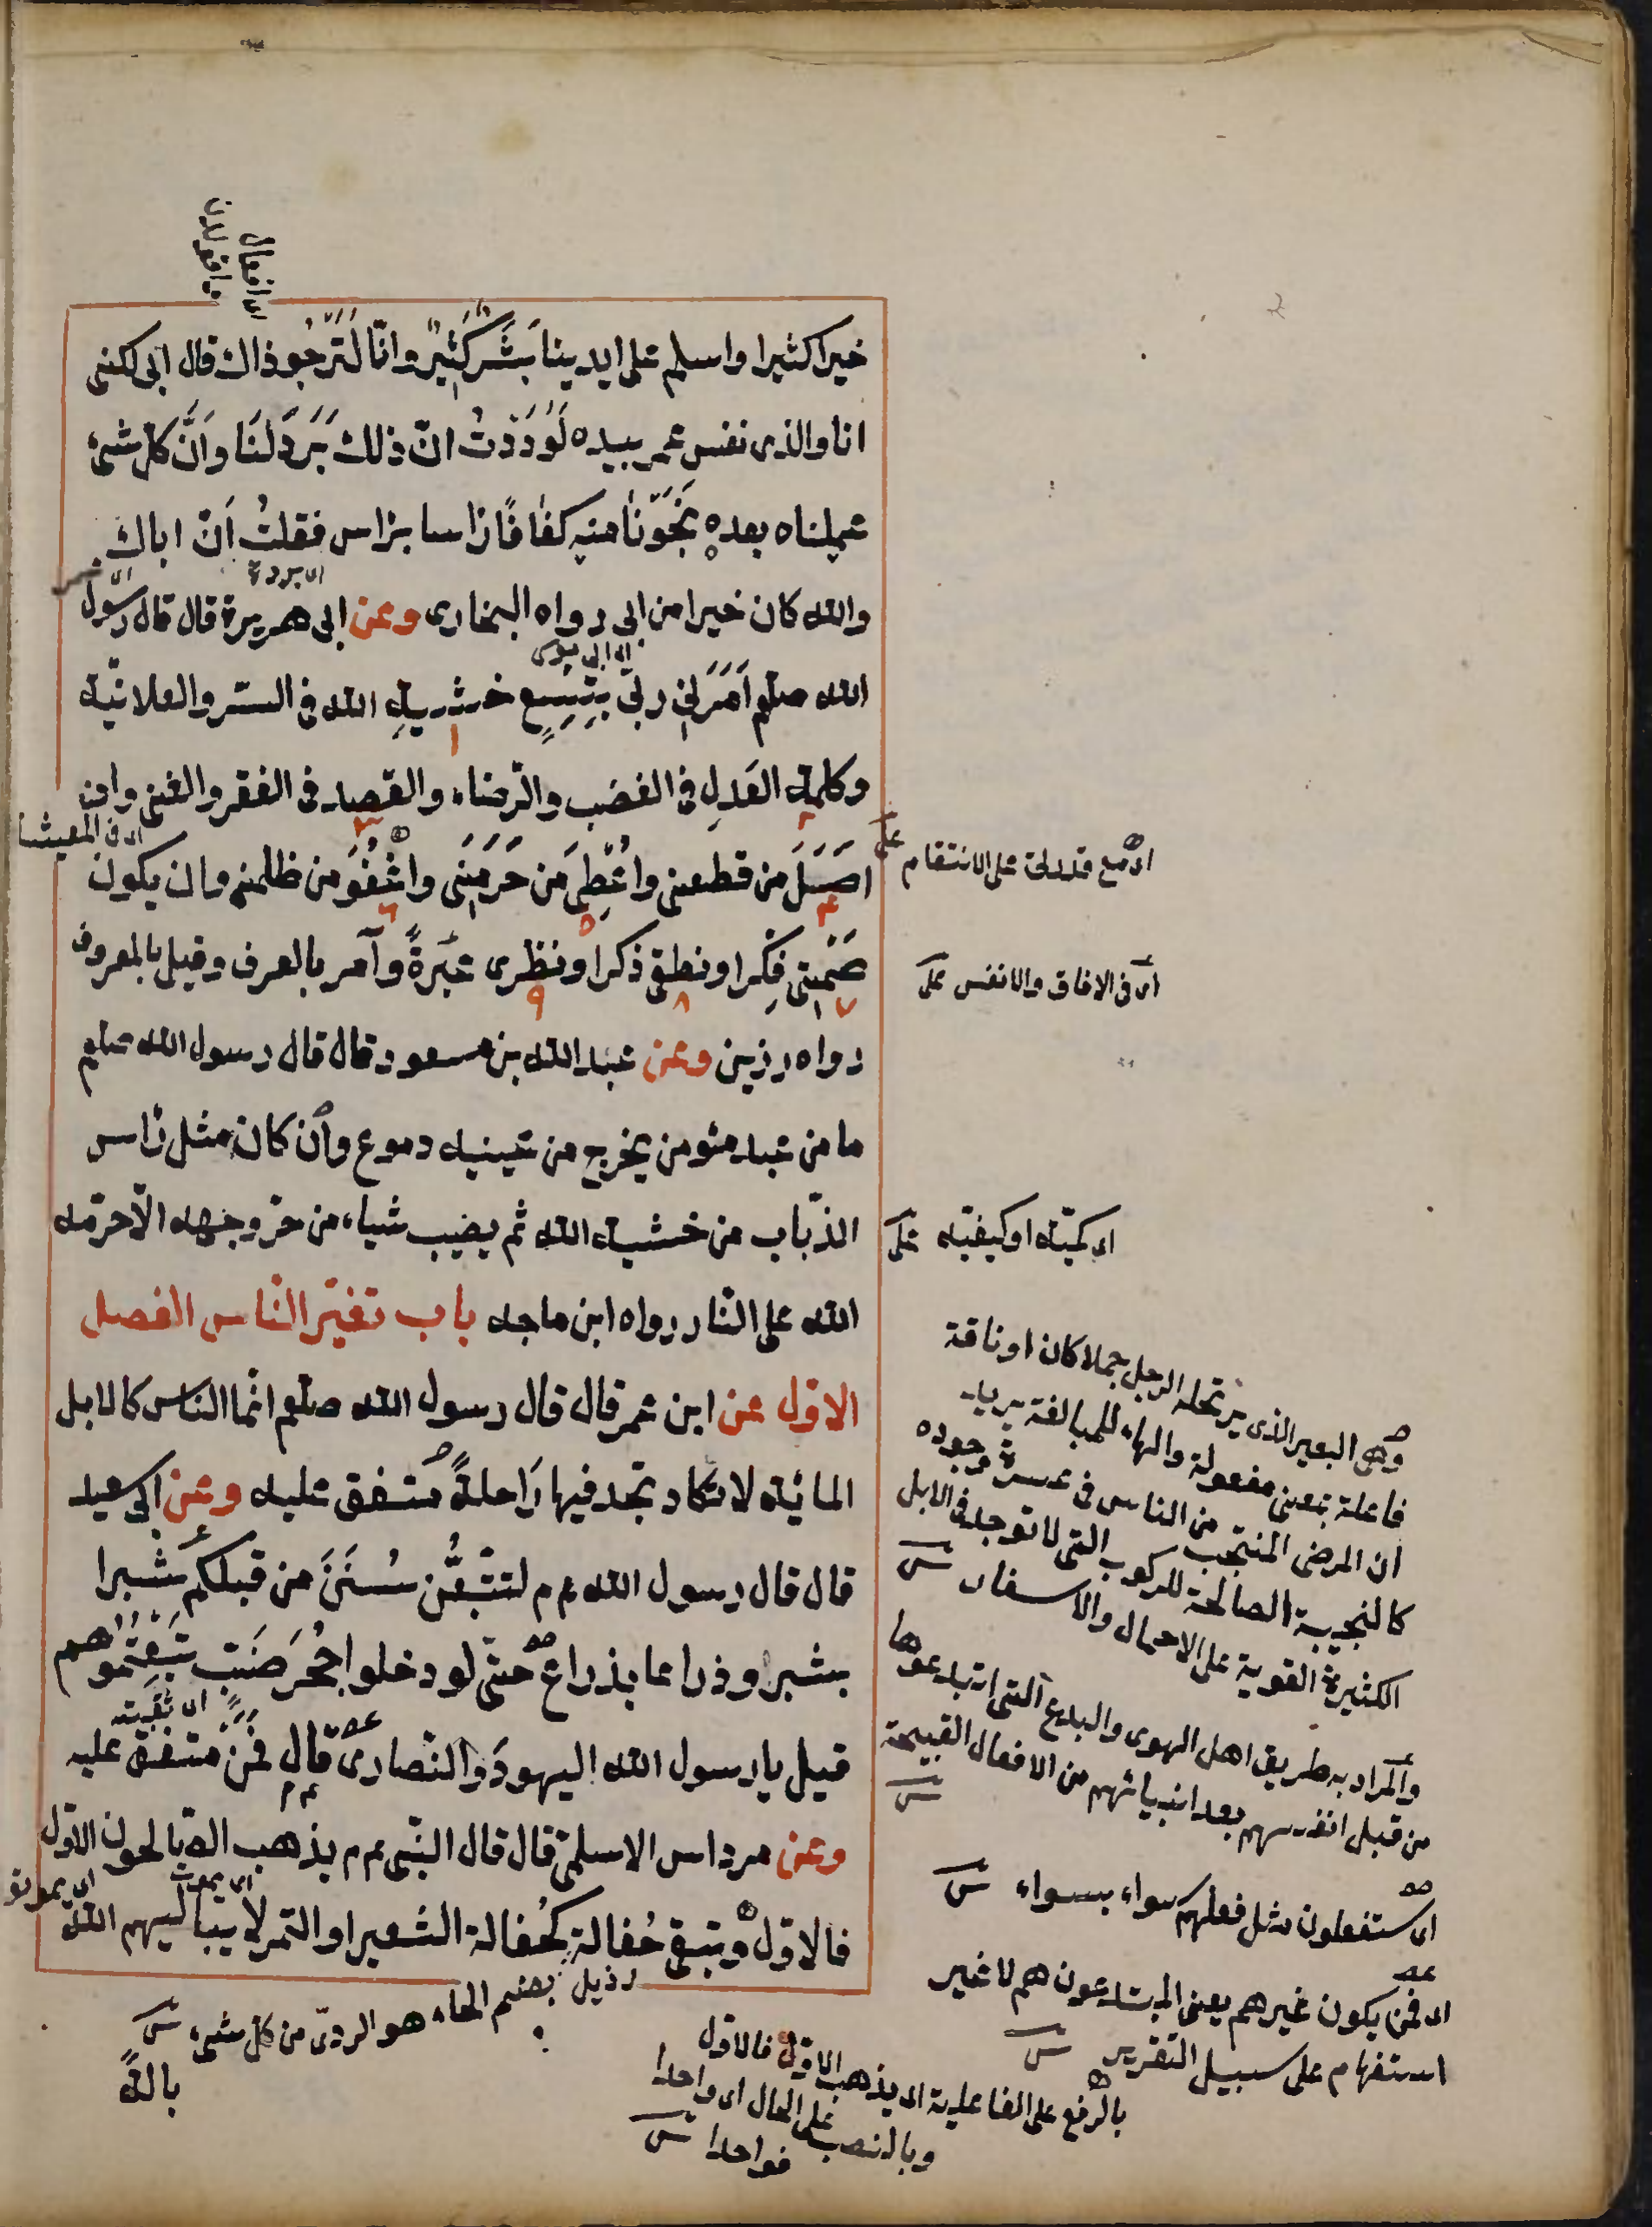 خيرا كثيرا واسلم على ايدينا بَشَرٌ كَثِيرٌ وانّا لَنَرجُو ذاك قال ابى لكنى
انا والذى نفس عمر بيده لَوَدَدْتُ انّ ذلك بَرَدَ لَنَا وَاَنَّ كل شئ
عملناه بعده نَجَوْنَا منه كفافًا رَاسا براس فقلتُ اَنّ اباك
اى بردة
والله كان خيرا من ابى رواه البخارى وعن ابى هريرة قال قال رسول
اى ابى موسى
الله صلعم اَمَرَنِى ربى بِتِسِعٍ خشية الله فى السّر والعلانية
١
وكلمة العَدلِ فى الغضب والرّضاء والقصد فى الفقر والغنى وان
اى فى المعيشة
اصِلَ من قطعنى واُعْطِىَ مَن حَرَمَنِى واَعْفُوَ من ظلمنى وان يكون
صَمْتِى فِكرا ونطقى ذكرا ونظرى عَبْرَةً وآمر بالعرف وقيل بالمعروف
٧ ٨ ٩
رواه رزين وعن عبد الله بن مسعود قال قال رسول الله صلعم
ما من عبد مؤمن يخرج من عينيه دموع وان كان مثل رَاس
الذّباب من خشية الله ثم يصيب شياء من حرّ وجهه الّا حرّمه
الله على النّار رواه ابن ماجه باب تغيّر النّاس الفصل
الاوّل عن ابن عمر قال قال رسول الله صلعم انّما الناس كالابل
المائية لا تكاد تجد فيها رَاحلةً متفق عليه وعن ابى سعيد
قال قال رسول الله ع م لتتّبعُنّ سُنَنَ من قبلكم شبرا
بشبر وذراعا بذراع حتّى لو دخلوا جُحْرَ ضَبّ تَبِعْتُمُوهم
قيل يا رسول الله اليهودَ والنّصارى قال فَمَنْ متفق عليه
ع م
وعن مرداس الاسلمىّ قال قال النّبى ع م يذهب الصّالحون الاوّل
اى يموت
اى يموتو
فالاوّل وتبقى حُفالة كحُفالة الشعير او التمر لا يباليهم الله
اى مع قدرتى على الانتقام على
اى فى الافاق والانفس على
اى كميّته او كيفيّته على
وهى البعير الذى يرتحله الرجل جملا كان او ناقة
فاعلة بمعنى مفعولة والهاء للمبالغة يريد
ان المرضى المنتجب من الناس فى عسرة وجوده
كالنجيبة الصالحة للركوب التى لا توجد فى الابل
الكثيرة القوية على الاحمال والاسفار
والمراد به طريق اهل الهوى والبدع التى ابتدعوها
من قبل انفسهم بعد انبيائهم من الافعال القبيحة
اى ستفعلون مثل فعلهم سواء بسواء
اى فمن يكون غيرهم يعنى المبتدعون هم لا غير
استفهام على سبيل التقرير
بالرفع على الفاعلية اى يذهب الاوّل فالاول
وبالنصب على الحال اى واحدا
فواحدا
رذيل بضم الحاء هو الردىّ من كل شئ
بالةً